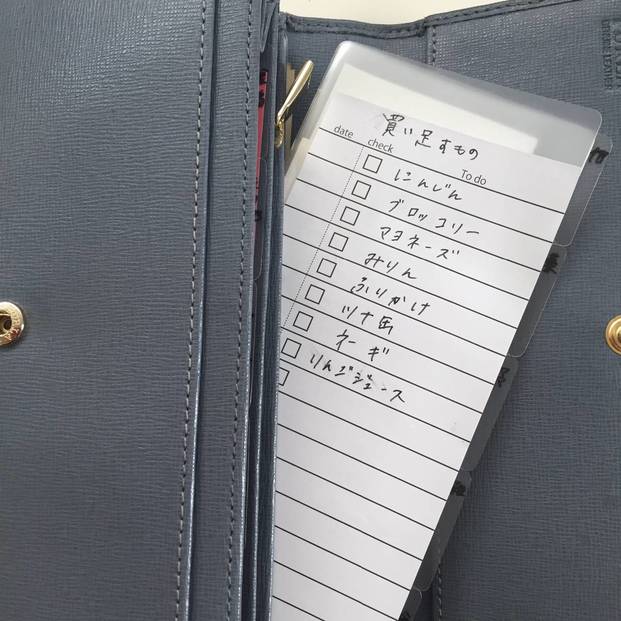 買い足すもの
date check To do
にんじん
ブロッコリー
マヨネーズ
みりん
ふりかけ
ツナ缶
ネーギ
りんごジュース